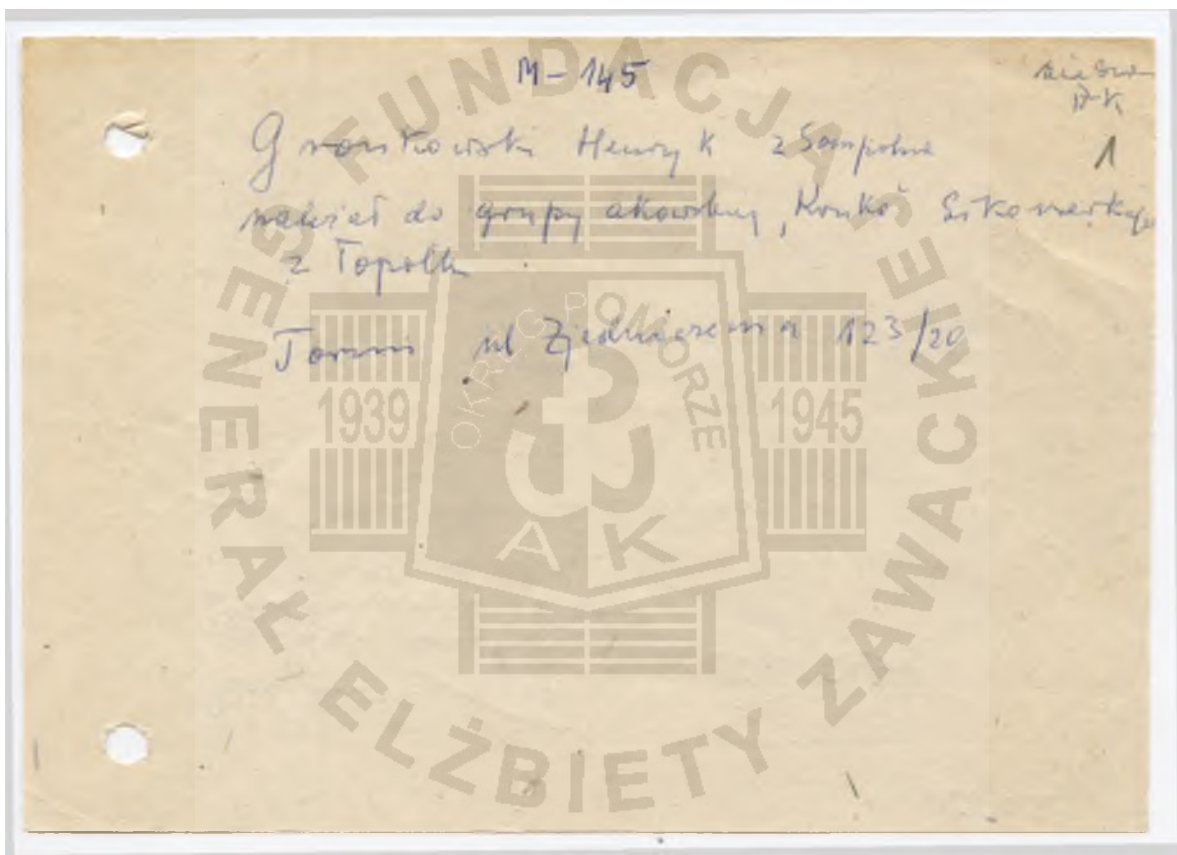 M-145
1
Henryk z Sompolna
należał do grupy akowskiej
z Topólki
Toruń ul Zjednoczenia 123/20
FUNDACJA GENERAŁ ELŻBIETY ZAWACKIEJ
OKRĘG POMORZE
1939 1945
AK